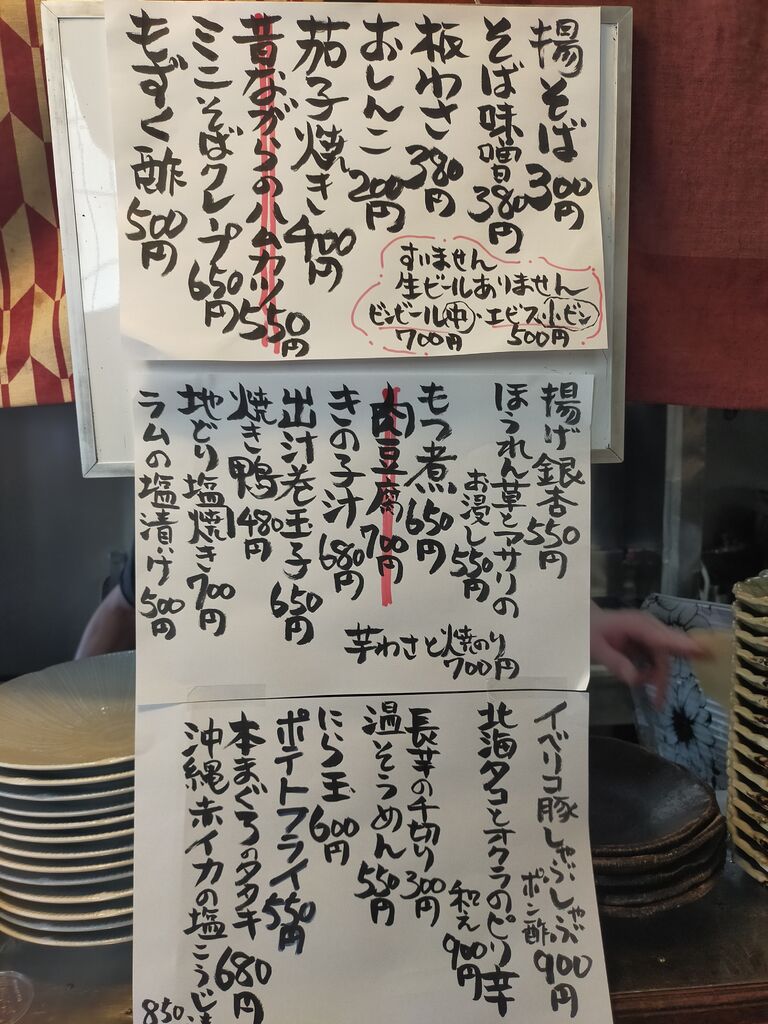 揚そば 300円
そば味噌 380円
板わさ 380円
おしんこ 200円
茄子焼き 400円
昔ながらのハムカツ 550円
ミニそばクレープ 650円
もずく酢 500円
すいません
生ビールありません
ビンビール中・エビス小ビン
700円 500円
揚げ銀杏 550円
ほうれん草とアサリの
お浸し 550円
もつ煮 650円
肉豆腐 700円
きの子汁 680円
出汁巻玉子 650円
焼き鴨 480円
地どり塩焼き 700円
ラムの塩漬け 500円
芋わさと焼のり
700円
イベリコ豚しゃぶしゃぶ
ポン酢 900円
北海タコとオクラのピリ辛
和え 900円
長芋の千切り 300円
温そうめん 550円
にら玉 600円
ポテトフライ 550円
本まぐろのタタキ 680円
沖縄赤イカの塩こうじ
850